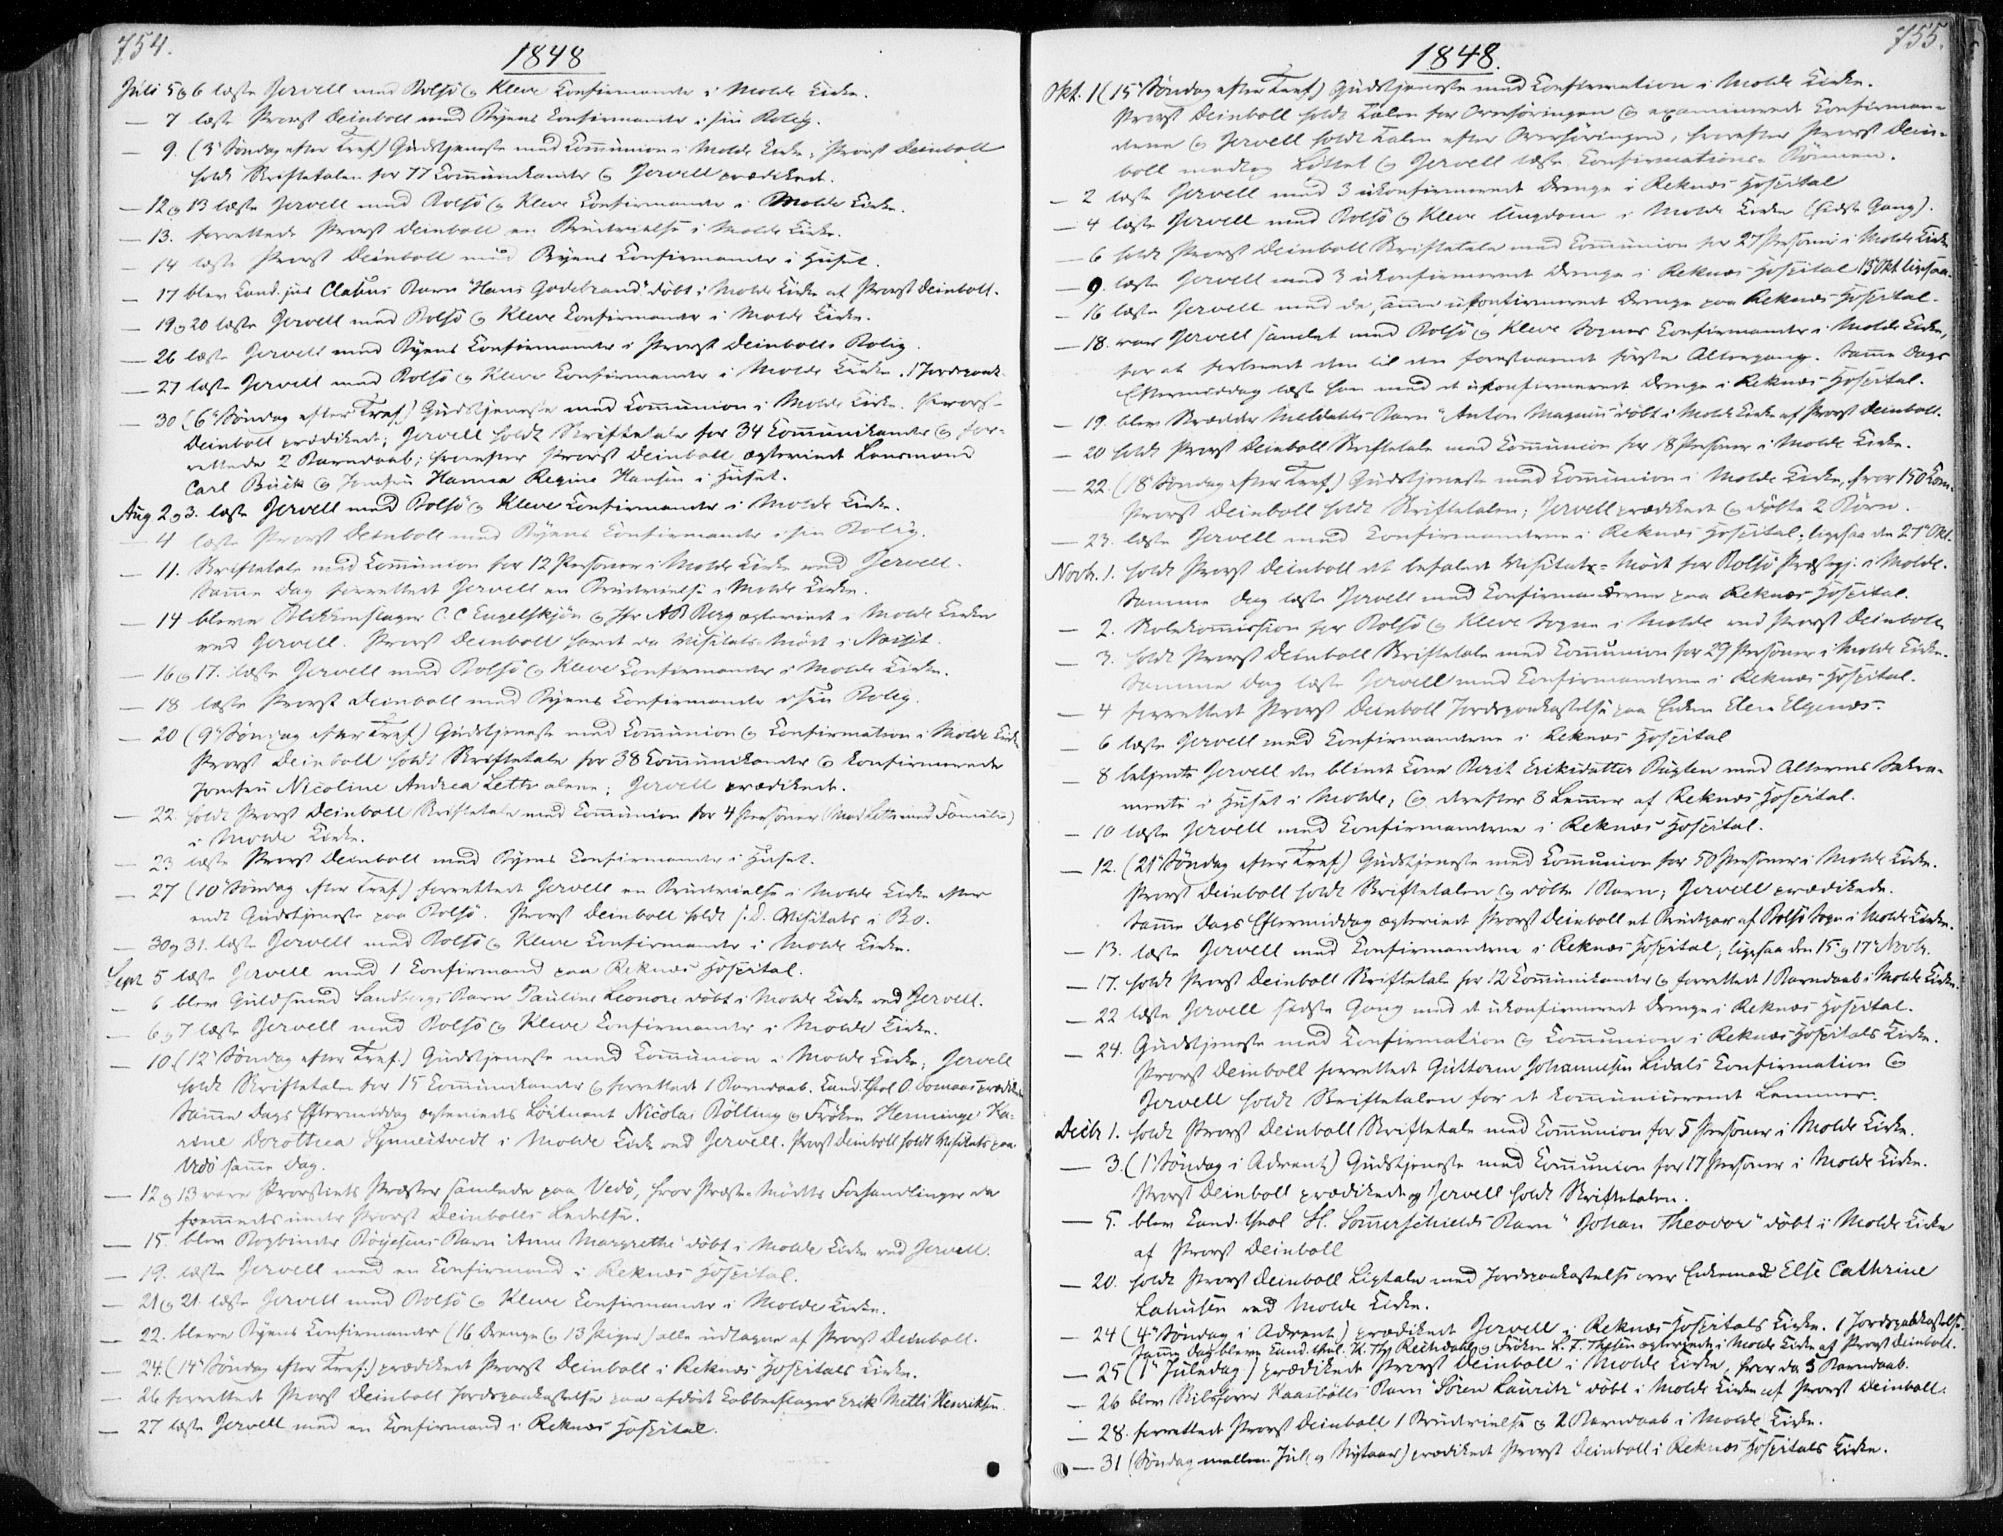 754.
1848
Juli 5 & 6 læste Jervell med Bolsø & Kleve Confirmander i Molde Kirke.
— 7 læste Provst Deinboll med Byens Confirmander i sin Bolig.
— 9. (3die Søndag efter Tref.) Gudstjeneste med Communion i Molde Kirke; Provst Deinboll
holdt Skriftetalen for 77 Communikanter & Jervell prædikede.
— 12 & 13 læste Jervell med Bolsø & Kleve Confirmander i Molde Kirke.
— 13. forrettede Provst Deinboll en Brudevielse i Molde Kirke.
— 14 læste Provst Deinboll med Byens Confirmander i Huset.
— 17 blev Cand. jur. Barn "Hans Godebrand" døbt i Molde Kirke af Provst Deinboll.
— 19 & 20 læste Jervell med Bolsø & Kleve Confirmander i Molde Kirke.
— 26 læste Jervell med Byens Confirmander i Provst Deinbolls Bolig.
— 27 læste Jervell med Bolsø & Kleve Confirmander i Molde Kirke. 1 Jordpaak.
— 30 (6te Søndag efter Tref.) Gudstjeneste med Communion i Molde Kirke. Provst
Deinboll prædikede; Jervell holdt Skriftetale for 34 Communikanter & for-
rettede 2 Barnedaab; hvorefter Provst Deinboll ægteviede Lensmand
Carl Buck & Jomfru Hanna Regine Hansen i Huset.
Aug 2 & 3. læste Jervell med Bolsø & Kleve Confirmander i Molde Kirke.
— 4 læste Provst Deinboll med Byens Confirmander i sin Bolig.
— 11. Skriftetale med Communion for 12 Personer i Molde Kirke ved Jervell.
Samme Dag forrettede Jervell en Brudevielse i Molde Kirke.
— 14 bleve Blikkenslager C. C Engelskjøn & Jfr AB Berg ægteviede i Molde Kirke
ved Jervell. Provst Deinboll havde da Visitats-Møde i Næsset.
— 16 & 17. læste Jervell med Bolsø & Kleve Confirmander i Molde Kirke.
— 18 læste Provst Deinboll med Byens Confirmander i sin Bolig.
— 20 (9de Søndag efter Tref.) Gudstjeneste med Communion & Confirmation i Molde Kirke
Provst Deinboll holdt Skriftetale for 38 Communikanter & confirmerede
Jomfru Nicoline Andrea Lette alene; Jervell prædikede.
— 22. holdt Provst Deinboll Skriftetale med Communion for 4 Personer (Mad Lette med Familie)
i Molde Kirke.
— 23 læste Provst Deinboll med Byens Confirmander i Huset.
— 27 (10de Søndag efter Tref.) forrettede Jervell en Brudevielse i Molde Kirke efter
endt Gudstjeneste paa Bolsø. Provst Deinboll holdt s. D. Visitats i Bo.
— 30 og 31. læste Jervell med Bolsø & Kleve Confirmander i Molde Kirke.
Sept 5 læste Jervell med 1 Confirmand paa Reknæs Hospital.
— 6 blev Guldsmed Sandbergs Barn Pauline Leonore døbt i Molde Kirke ved Jervell.
— 6 & 7 læste Jervell med Bolsø & Kleve Confirmander i Molde Kirke.
— 10 (12te Søndag efter Tref.) Gudstjeneste med Communion i Molde Kirke; Jervell
holdt Skriftetalen for 15 Communikanter & forrettede 1 Barnedaab. Cand. theol O. Domaas prædik.
Samme Dags Eftermiddag ægteviedes Løitnant Nicolai Bölling & Frøken Herminge Ka-
rine Dorothea i Molde Kirke ved Jervell. Provst Deinboll holdt Visitats paa
Vedø samme Dag.
— 12 & 13 vare Provstiets Præster samlede paa Vedø, hvor Præste-Mødets Forhandlinger da
fremmedes under Provst Deinbolls Ledelse.
— 15. blev Bogbinder Böyesens Barn "Anne Margrethe" døbt i Molde Kirke ved Jervell.
— 19. læste Jervell med en Confirmand i Reknæs Hospital.
— 21 & 21. læste Jervell med Bolsø & Kleve Confirmander i Molde Kirke.
— 22. bleve Byens Confirmander (16 Drenge & 13 Piger) alle udtagne af Provst Deinboll.
— 24. (14de Søndag efter Tref.) prædikede Provst Deinboll i Reknæs Hospitals Kirke.
— 26 forrettede Provst Deinboll Jordpaakastelse paa afdøde Kobberslager Erik Henriksen.
— 27 læste Jervell med en Confirmand i Reknæs Hospital.
755.
1848.
Okt. 1 (15de Søndag efter Tref.) Gudstjeneste med Confirmation i Molde Kirke.
Provst Deinboll holdt Talen for Overhøringen & examinerede Confirman-
derne & Jervell holdt Talen efter Overhøringen, hvorefter Provst Dein-
boll modtog Løftet & Jervell læste Confirmations-Bønnen.
— 2 læste Jervell med 3 ukonfirmerede Drenge i Reknæs Hospital
— 4 læste Jervell med Bolsø & Kleve Ungdom i Molde Kirke (sidste Gang).
— 6 holdt Provst Deinboll Skriftetale med Communion for 27 Personer i Molde Kirke
— 9. læste Jervell med 3 ukonfirmerede Drenge i Reknæs Hospital 13 Okt. ligesaa.
— 16 læste Jervell med de samme ukonfirmerede Drenge paa Reknæs Hospital.
— 18. var Jervell samlet med Bolsø & Kleve Sognes Confirmander i Molde Kirke,
for at forberede dem til den forestaaende første Altergang. Samme Dags
Eftermiddag læste han med de ukonfirmerede Drenge i Reknæs Hospital.
— 19. blev Skrædder Meldahls Barn "Anton Magnus" døbt i Molde Kirke af Provst Deinboll.
— 20 holdt Provst Deinboll Skriftetale med Communion for 18 Personer i Molde Kirke.
— 22. (18de Søndag efter Tref.) Gudstjeneste med Communion i Molde Kirke, hvor 150 Kom.
Provst Deinboll holdt Skriftetalen; Jervell prædikede & døbte 2 Børn.
— 23. læste Jervell med Confirmanderne i Reknæs Hospital; ligesaa den 27de Okt.
Novb. 1. holdt Provst Deinboll det befalede Visitats-Møde for Bolsø Præstegj. i Molde.
Samme Dag læste Jervell med Confirmanderne paa Reknæs Hospital.
— 2. Skolekommission for Bolsø & Kleve Sogne i Molde ved Provst Deinboll.
— 3. holdt Provst Deinboll Skriftetale med Communion for 29 Personer i Molde Kirke.
Samme Dag læste Jervell med Confirmanderne i Reknæs Hospital.
— 4 forrettede Provst Deinboll Jordpaakastelse paa Enken Elen Elgenæs.
— 6 læste Jervell med Confirmanderne i Reknæs Hospital
— 8 betjente Jervell den blinde Kone Berit Eriksdatter Buglen med Alterens Sakra-
mente i Huset i Molde; & derefter 8 Lemmer af Reknæs Hospital.
— 10 læste Jervell med Confirmanderne i Reknæs Hospital.
— 12. (21de Søndag efter Tref.) Gudstjeneste med Communion for 50 Personer i Molde Kirke.
Provst Deinboll holdt Skriftetalen & døbte 1 Barn; Jervell prædikede.
Samme Dags Eftermiddag ægteviede Provst Deinboll et Brudepar af Bolsø Sogn i Molde Kirke.
— 13. læste Jervell med Confirmanderne i Reknæs Hospital; ligesaa den 15de & 17de Novb.
— 17. holdt Provst Deinboll Skriftetale for 12 Communikanter & forrettede 1 Barnedaab i Molde Kirke.
— 22 læste Jervell sidste Gang med de ukonfirmerede Drenge i Reknæs Hospital.
— 24. Gudstjeneste med Confirmation & Communion i Reknæs Hospitals Kirke.
Provst Deinboll forrettede Guttorm Johannesen Lidals Confirmation &
Jervell holdt Skriftetalen for de kommunicerende Lemmer.
Decbr 1. holdt Provst Deinboll Skriftetale med Communion for 5 Personer i Molde Kirke.
— 3. (1ste Søndag i Advent) Gudstjeneste med Communion for 17 Personer i Molde Kirke.
Provst Deinboll prædikede og Jervell holdt Skriftetalen.
— 5. blev Cand. theol H. Sommerschields Barn "Johan Theodor" døbt i Molde Kirke
af Provst Deinboll
— 20. holdt Provst Deinboll Ligtale med Jordpaakastelse over Enkemad. Else Cathrine
ved Molde Kirke.
— 24 (4de Søndag i Advent) prædikede Jervell i Reknæs Hospitals Kirke. 1 Jordpaakastelse.
Samme Dag bleve Cand. theol. K. Thj & Frøken L. F. ægteviede i Molde Kirke af Provst Deinboll.
— 25 (1ste Juledag) prædikede Provst Deinboll i Molde Kirke, hvor da 5 Barnedaab.
— 26 blev Skibsfører Kaasbølls Barn "Søren Lauritz" døbt i Molde Kirke af Provst Deinboll.
— 28. forrettede Provst Deinboll 1 Brudevielse & 2 Barnedaab i Molde Kirke.
— 31 (Søndag mellem Jul & Nytaar) prædikede Provst Deinboll i Reknæs Hospitals Kirke.